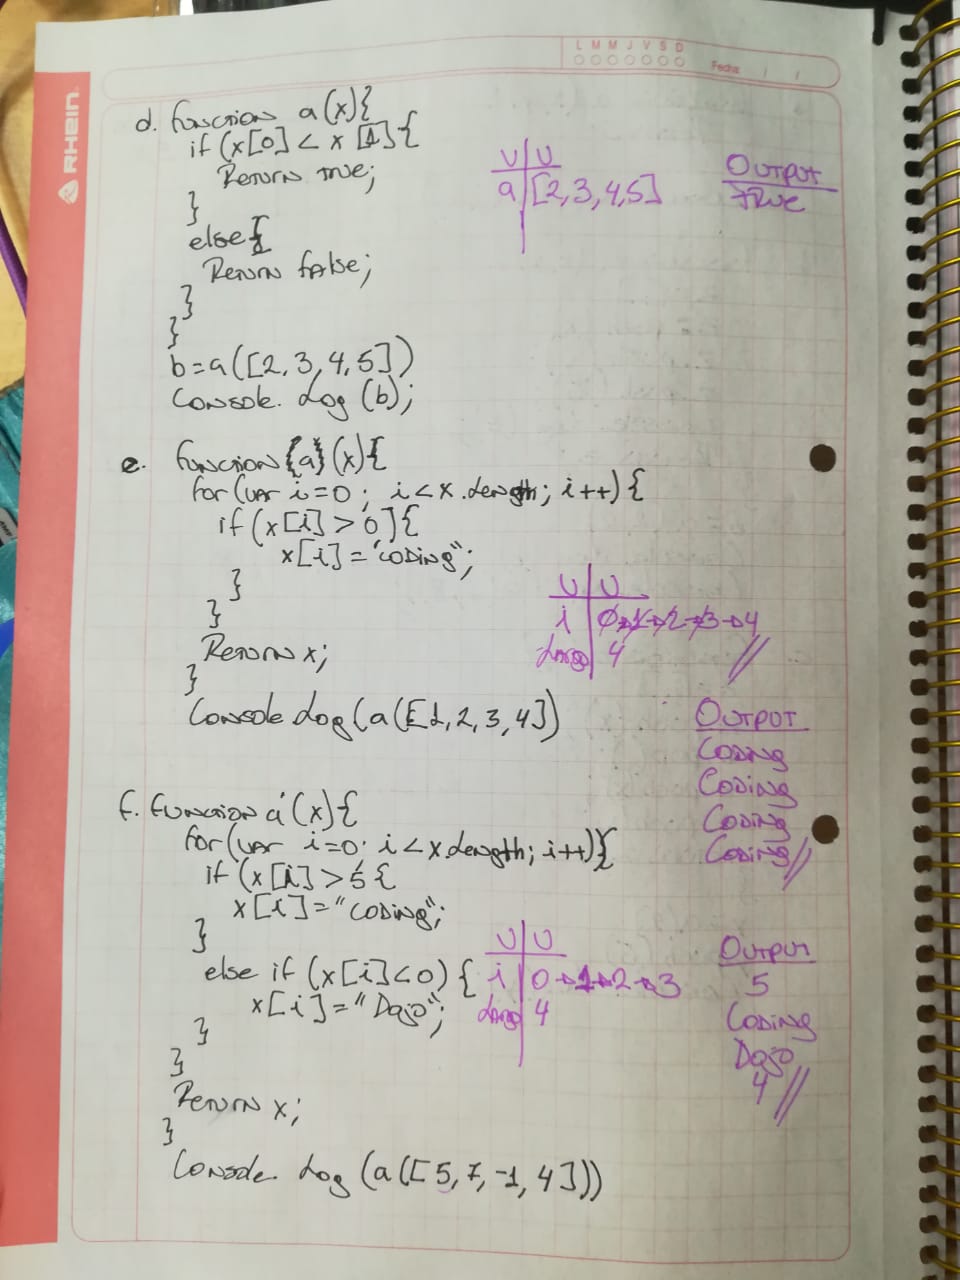 L M M J V S D
Fecha: / /
RHEIN
d. function a(x){
if (x[0] < x [1]{
Return true;
}
else{
Return false;
}
}
b=a([2,3,4,5])
Console. Log (b);
V V
a [2,3,4,5]
OUTPUT
true
e. function{a}(x){
for(var i=0; i<x.Length; i++){
if(x[i]>0]{
x[i]="CODING";
}
}
Return x;
}
Console Log(a([1,2,3,4])
V V
i 0→1→2→3→4
Largo 4
OUTPUT
CODING
CODING
CODING
CODING//
f. function a(x){
for(var i=0; i<x.Length; i++){
if (x[i]>5{
x[i]="CODING";
}
else if (x[i]<0) {
x[i]="Dojo";
}
}
Return x;
}
Console. Log (a([5,7,-1,4]))
V V
i 0→1→2→3
Largo 4
OUTPUT
5
CODING
Dojo
4//